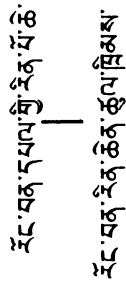 རོང་བན་དཔལ་གྱི་རིན་པོ་ཆེ་
རོང་བན་རིན་ཆེན་ཚུལ་ཁྲིམས་